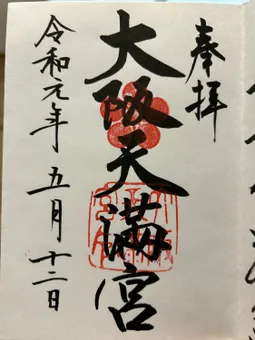 奉拝
大阪天満宮
令和元年 五月 十二日